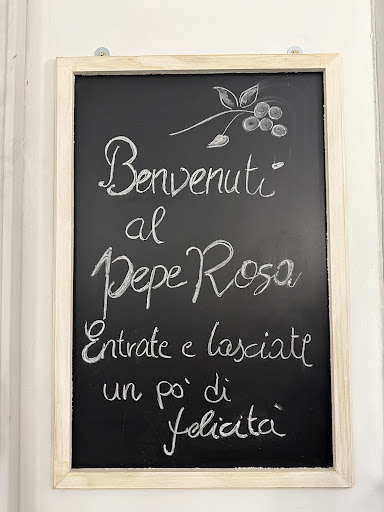 Benvenuti
al
Pepe Rosa
Entrate e lasciate
un po' di
felicità